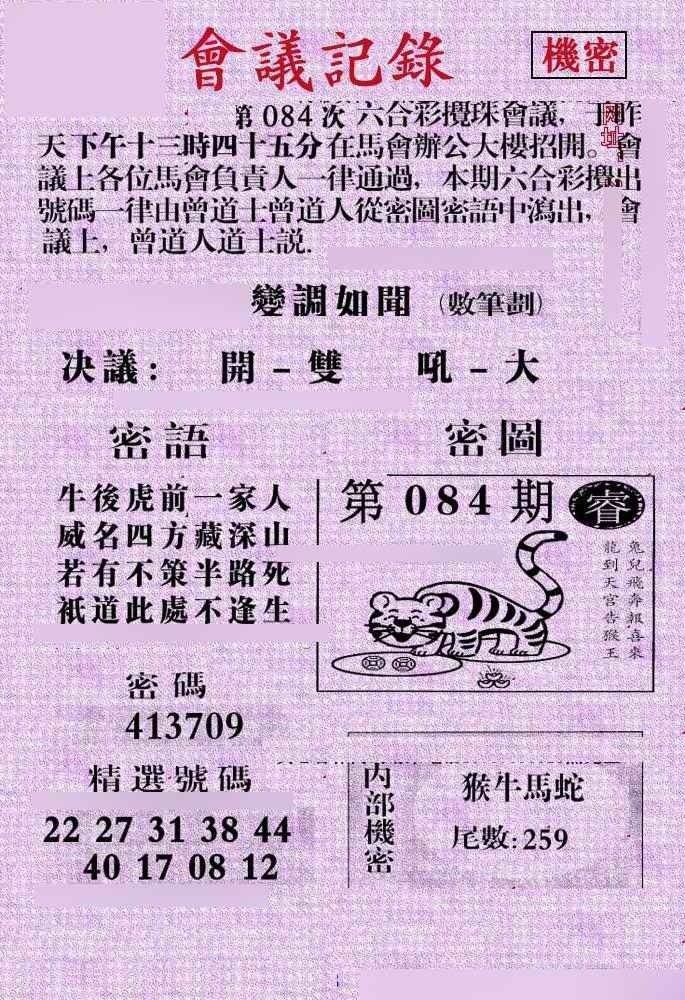 會議記錄
機密
第084次六合彩攪珠會議，于昨
天下午十三時四十五分在馬會辦公大樓招開。會
議上各位馬會負責人一律通過，本期六合彩攪出
號碼一律由曾道士曾道人從密圖密語中瀉出，會
議上，曾道人道士説.
网址
變調如聞（數筆劃）
决議：開－雙 吼－大
密語
牛後虎前一家人
威名四方藏深山
若有不策半路死
衹道此處不逢生
密圖
第084期
睿
兔兒飛奔報喜來
龍到天宫告猴王
密碼
413709
精選號碼
22 27 31 38 44
40 17 08 12
内部機密
猴牛馬蛇
尾數:259